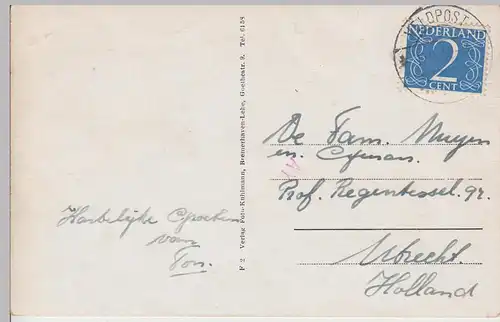 VELDPOST
NEDERLAND
2
CENT
F 2 Verlag Foto-Kuhlmann, Bremerhaven-Lehe, Goethestr. 9. Tel. 6158
De Fam.
en
Prof. Regentessel. 92.
Utrecht.
Holland
Hartelijke Groeten
van
Ton.